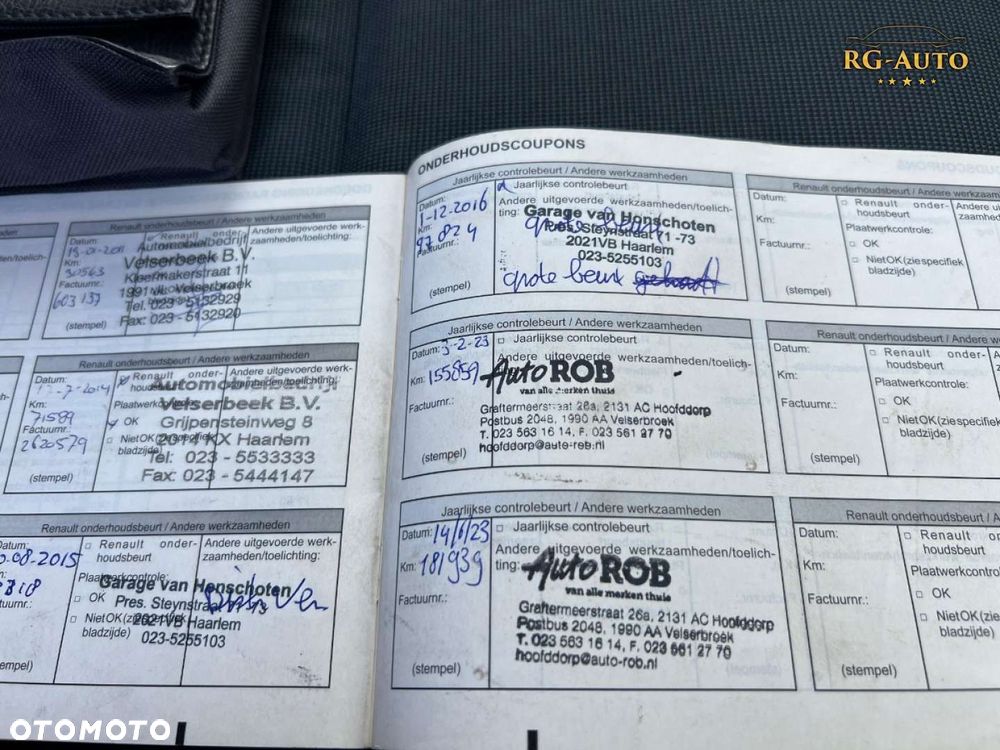 RG-AUTO
ONDERHOUDSCOUPONS
Renault onderhoudsbeurt / Andere werkzaamheden
Datum:
Km:
30563
Factuurnr.:
603137
(stempel)
Automobielbedrijf
Velserbeek B.V.
Kleermakerstraat 11
1991 Velserbroek
Tel. 023 - 5132929
Fax: 023 - 5132920
Renault onderhoudsbeurt / Andere werkzaamheden
Datum:
Km:
71589
Factuurnr.:
2620579
(stempel)
Renault onder-
houdsbeurt
Plaatwerkcontrole:
OK
Niet OK (zie specifiek
bladzijde)
Automobielbedrijf
Velserbeek B.V.
Grijpensteinweg 8
KX Haarlem
Tel: 023 - 5533333
Fax: 023 - 5444147
Renault onderhoudsbeurt / Andere werkzaamheden
Datum:
08.2015
Factuurnr.:
Renault onder-
houdsbeurt
Plaatwerkcontrole:
OK
Niet OK (zie specifiek
bladzijde)
Andere uitgevoerde werk-
zaamheden/toelichting:
Garage van Honschoten
Pres. Steynstraat 71-73
2021VB Haarlem
023-5255103
Jaarlijkse controlebeurt / Andere werkzaamheden
Datum:
1-12-2016
Km:
97824
Factuurnr.:
(stempel)
Jaarlijkse controlebeurt
Andere uitgevoerde werkzaamheden/toelich-
ting:
Garage van Honschoten
Pres. Steynstraat 71 -73
2021VB Haarlem
023-5255103
grote beurt
Jaarlijkse controlebeurt / Andere werkzaamheden
Datum:
3-2-23
Km:
155859
Factuurnr.:
(stempel)
Jaarlijkse controlebeurt
Andere uitgevoerde werkzaamheden/toelich-
Auto ROB
van alle merken thuis
Graftermeerstraat 26a, 2131 AC Hoofddorp
Postbus 2048, 1990 AA Velserbroek
T. 023 563 16 14, F. 023 561 27 70
hoofddorp@auto-rob.nl
Jaarlijkse controlebeurt / Andere werkzaamheden
Datum:
14/6/23
Km:
181939
Factuurnr.:
(stempel)
Jaarlijkse controlebeurt
Andere uitgevoerde werkzaamheden/toelich-
ting:
Auto ROB
van alle merken thuis
Graftermeerstraat 26a, 2131 AC Hoofddorp
Postbus 2048, 1990 AA Velserbroek
T. 023 563 16 14, F. 023 561 27 70
hoofddorp@auto-rob.nl
Renault onderhoudsbeurt / Andere
Datum:
Km:
Factuurnr.:
(stempel)
Renault onder-
houdsbeurt
Plaatwerkcontrole:
OK
Niet OK (zie specifiek
bladzijde)
Renault onderhoudsbeurt / Andere
Datum:
Km:
Factuurnr.:
(stempel)
Renault onder-
houdsbeurt
Plaatwerkcontrole:
OK
Niet OK (zie specifiek
bladzijde)
Renault onderhoudsbeurt / And
Datum:
Km:
Factuurnr.:
(stempel)
Renault onder-
houdsbeurt
Plaatwerkcontrole:
OK
Niet OK (zie specifiek
bladzijde)
OTOMOTO